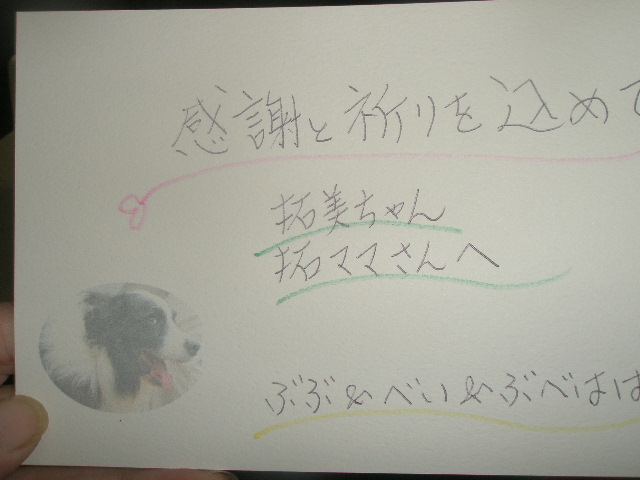 感謝と祈りを込めて
拓美ちゃん
拓ママさんへ
ぶぶ&べい&ぶべはは